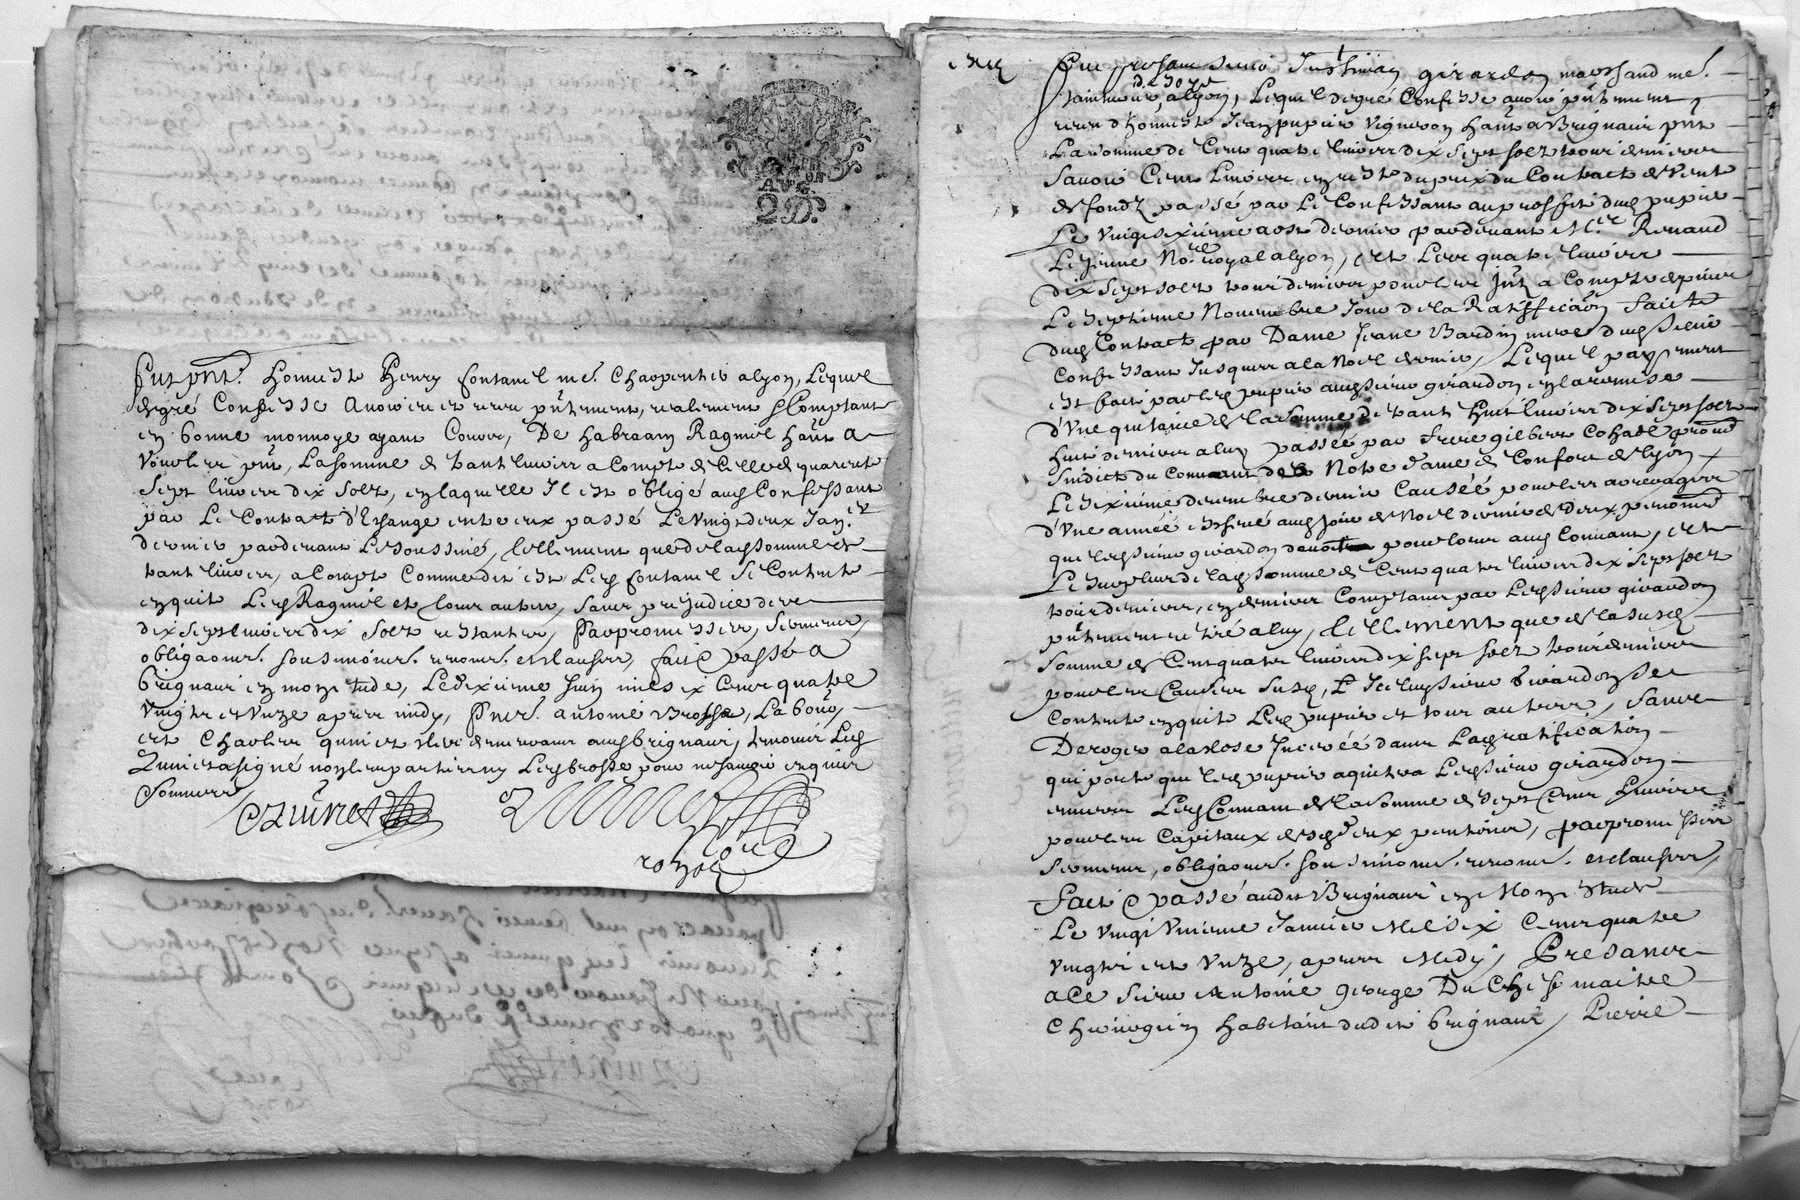 2 D.
Fut pnt. Honneste Henry fontanel me. Charpentier a lyon, Lequel
de gré Confesse Avoir eu et receu pntement, reallement & Comptant
en bonne monnoye ayant Cours, De habraam Ragniel habnt a
Vourles pnt, La somme de tant livres a Compte de Celle de quarente
Sept livres dix Solz, en laquelle Il est obligé aud Confessant
par Le Contract d'Eschange entre eux passé Le Vingtdeux Janer.
dernier pardevant Le soussiné, tellement que de lad somme de
tant livres, a Compte Comme dit est Led fontanel Se Contente
en quite Led Ragniel et tous autres, sans prejudice des
dix sept livres dix Solz restantes, Par promesses, serment,
obligaons. sousmions. renons. et clauses, fait & passé a
brignais en mon etude, Le dixieme Juin mil six Cent quatre
Vingts et Unze apres midy, Pnts. antoine Brosse,
et Charles quinet Clerc demeurant aud brignais, temoins Led
Quinet a signé non les parties ny Led brosse pour ne savoir enquis
& Sommes
CQuinet
Fut Present Sieur Justinian girardon marchand me.
de Soye
tainturier a lyon, Lequel de gré Confesse avoir pntement
receu d'Honneste Jean pupier Vigneron habnt a Brignais pnt
La somme de Cent quatre livres dix Sept solz tour deniers
Savoir Cent Livres en reste du prix du Contract de Vente
de fondz passé par Le Confessant au proffit dud pupier
Le Vingt sixieme aost dernier pardevant Me. Renaud
Lejeune No.re royal a lyon, et Les quatre livres
dix Sept solz tour deniers pour les Intz a Compter depuis
Le Septieme Novembre Jour de la Ratifficaon faicte
dud Contract par Dame Jeane Bardin mere dud sieur
Confessant Jusques a la Noel dernier, Lequel payement
est fait par led pupier aud sieur girardon en la remise
d'Une quitance de la somme de tant huit livres dix Sept solz
huit deniers a luy passée par frere gilbert Cohade
Sindict du Convant de Notre dame de Confort de Lyon
Le dixieme decembre dernier Causée pour les arrerages
d'Une année escheue aud Jour de Noel dernier de deux pensions
que led sieur girardon devoit pour lors aud Convant, et
Le surplus de lad somme de Cent quatre livres dix Sept solz
tour deniers, en deniers Comptans par Led sieur girardon
pntement retiré a luy, tellement que de la susd
Somme de Cent quatre livres dix sept solz tour deniers
pour les Causes susd, Icelluy sieur Girardon Se
Contente en quite Led pupier et tous autres, sans
Deroger a la Close Inserée dans Lad ratification
qui porte que led pupier aquitera Led sieur girardon
envers Led Convant de la somme de Sept Cent livres
pour les Capitaux desd deux pensions, par promesses
Serment, obligaons. sousmions. renons. et clauses,
Fait & passé aud Brignais en Mon Etude
Le vingt Unieme Janvier Mil six Cent quatre
Vingts et Unze, apres Midy, Presans
a Ce Sieur Antoine george maitre
Chirurgien habitant dudit brignais, Pierre